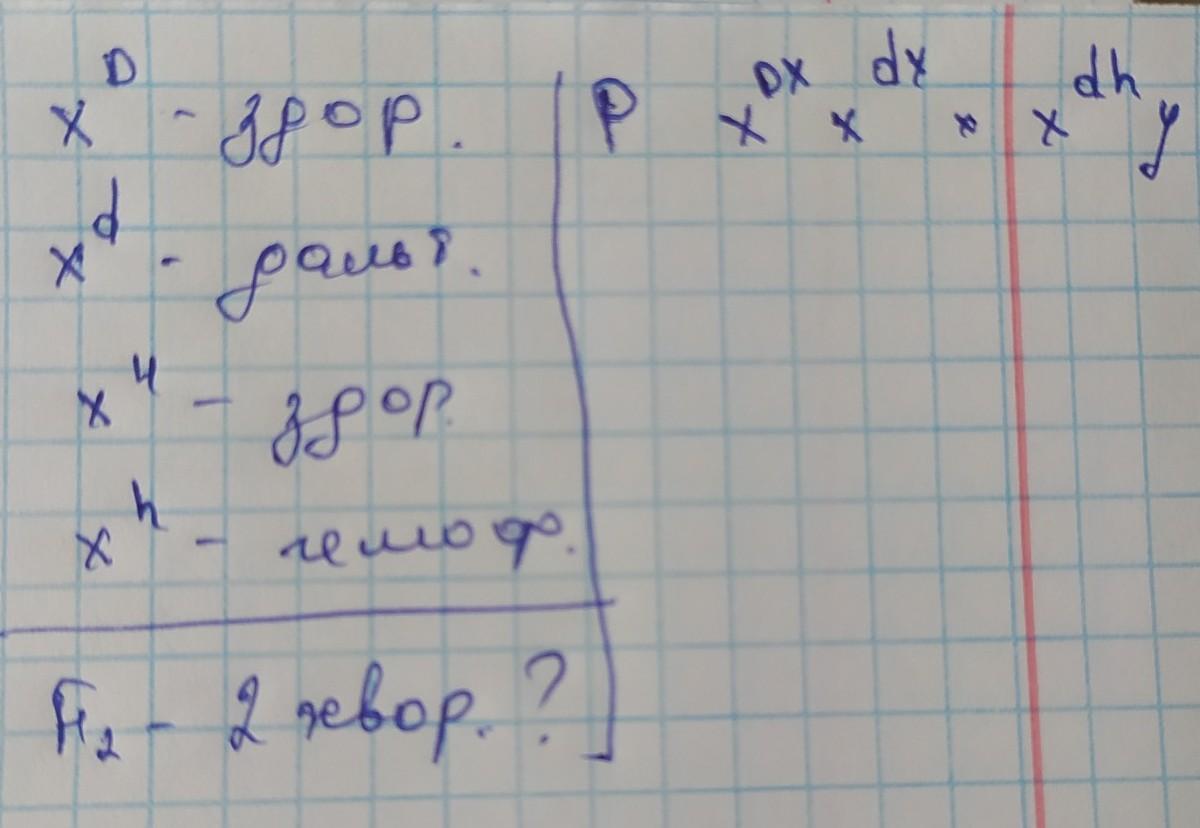 x^D - здор.
x^d - дальт.
x^H - здор.
x^h - гемоф.
F₂ - 2 хвор. ?
P x^DX x^dX × x^dh y